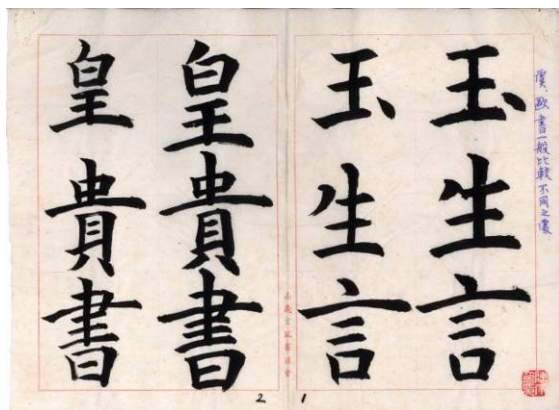 虞、歐書一般比較不同之處
玉生言
玉生言
皇貴書
皇貴書
2 1